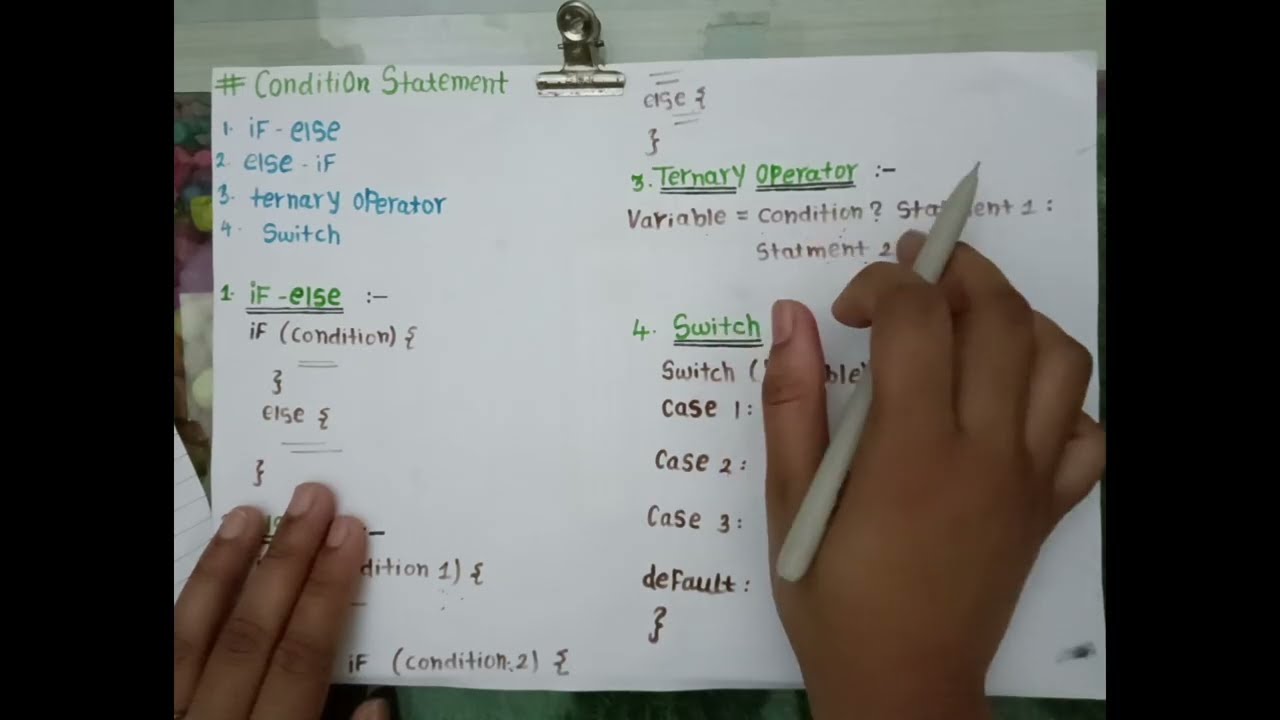 # Condition Statement
1. if - else
2. else - if
3. ternary operator
4. Switch
1. if - else :-
if (Condition) {
}
else {
}
:-
dition 1) {
if (condition 2) {
else {
}
3. Ternary Operator :-
Variable = Condition? Sta ent 1 :
Statment 2
4. Switch
Switch ( ble)
Case 1:
Case 2:
Case 3:
default:
}